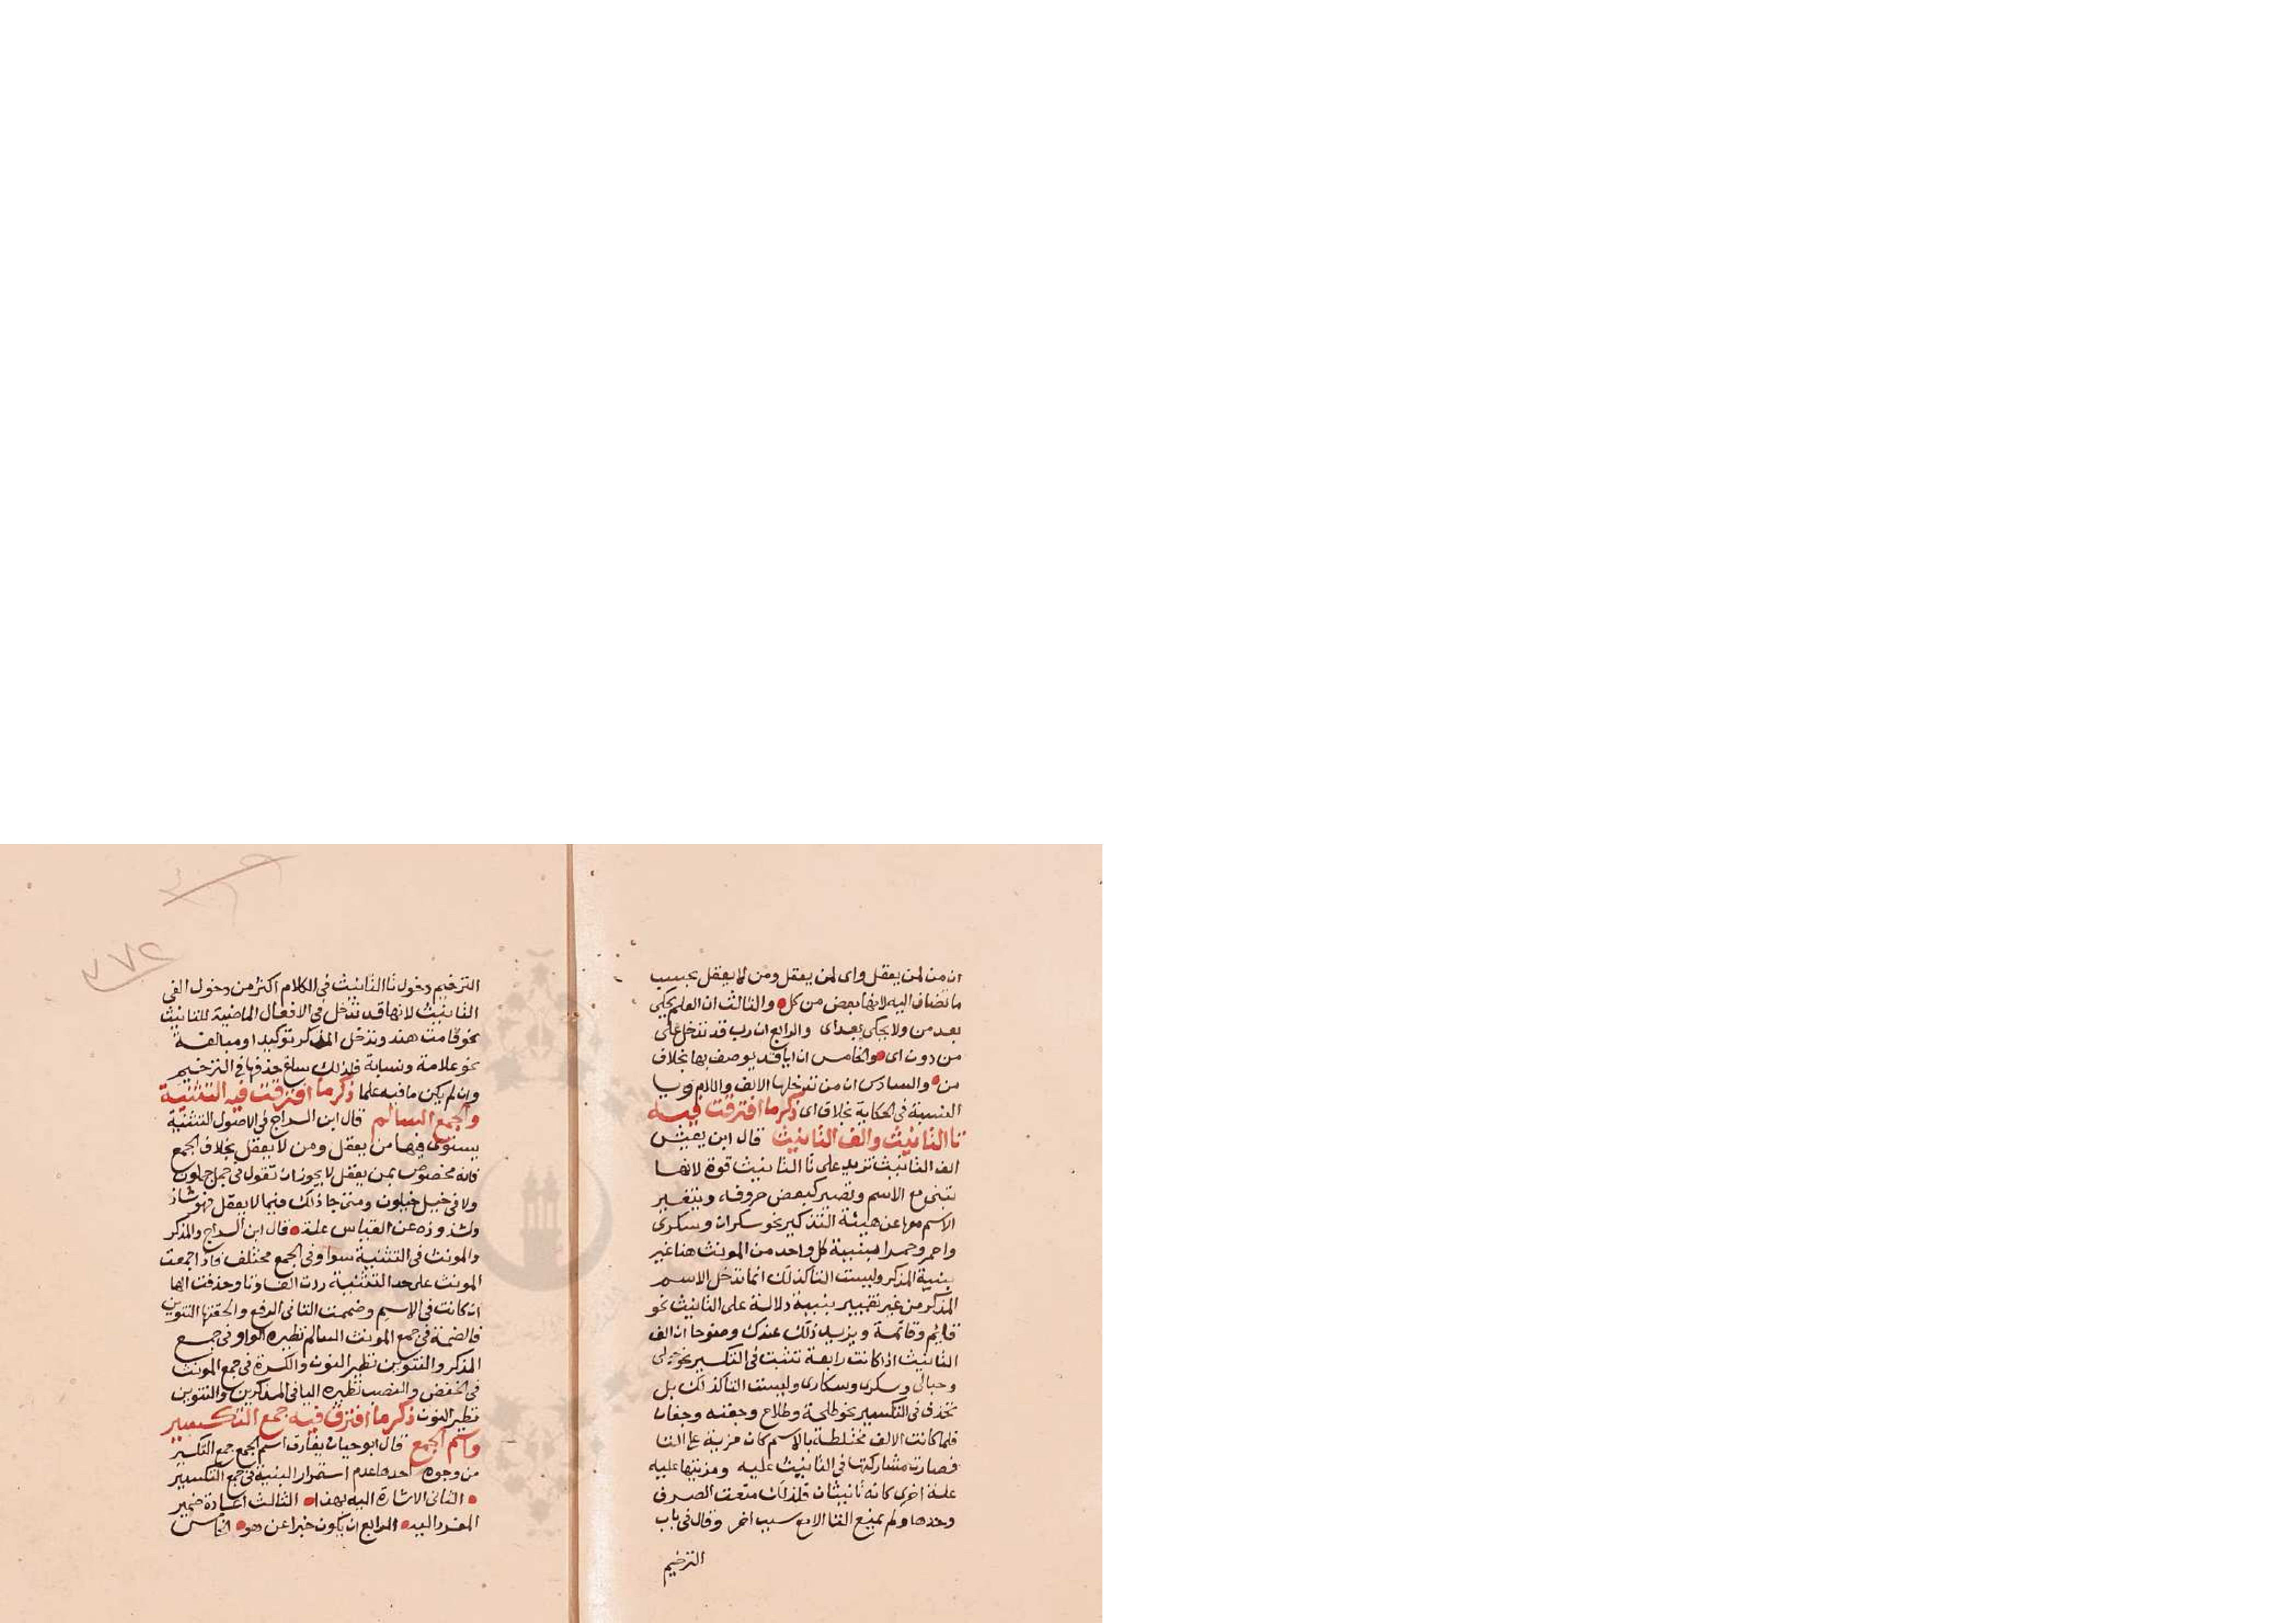 ان من لمن يعقل واى لمن يعقل ومن لا يعقل بحسب
ما تضاف اليه لانها بعض من كل والثالث ان العلم يحكى
بعد من ولا يحكى بعد اى والرابع ان رب قد تدخل على
من دون اى والخامس ان ايا قد يوصف بها بخلاف
من والسادس ان من تدخلها الالف واللام ويا
النسبة فى الحكاية بخلاف اى ذكر ما افترقت فيه
تا التانيث والف التانيث قال ابن يعيش
الف التانيث تزيد على تا التانيث قوة لانها
تبنى مع الاسم وتصير كبعض حروفه ويتغير
الاسم معها عن هيئة التذكير نحو سكران وسكرى
واحمر وحمرا فبنية كل واحد من المونث هنا غير
بنية المذكر وليست التا كذلك انما تدخل الاسم
المذكر من غير تغيير بنيته دلالة على التانيث نحو
قايم وقائمة ويزيد ذلك عندك وضوحا ان الف
التانيث اذا كانت رابعة تثبت فى التكسير نحو حبلى
وحبالى وسكرى وسكارى وليست التا كذلك بل
تحذف فى التكسير نحو طلحة وطلاح وجفنه وجفان
فلما كانت الالف مختلطة بالاسم كان مزية على التا
فصارت مشاركتها فى التانيث علة ومزيتها عليه
علة اخرى كانه تانيثان فلذلك منعت الصرف
وحدها ولم تمنع التا الا مع سبب اخر وقال فى باب
الترخيم
الترخيم دخول تا التانيث فى الكلام اكثر من دخول الفى
التانيث لانها قد تدخل فى الافعال الماضية للتانيث
نحو قامت هند وتدخل المذكر توكيدا ومبالغة
نحو علامة ونسابة فلذلك ساغ حذفها فى الترخيم
وان لم يكن ما فيه علما ذكر ما افترقت فيه التثنية
والجمع السالم قال ابن السراج فى الاصول التثنية
يستوى فيها من يعقل ومن لا يعقل بخلاف الجمع
فانه مخصوص بمن يعقل لا يجوز ان تقول فى جمل جملون
ولا فى جبل جبلون ومتى جا ذلك فيما لا يعقل فهو شاذ
ولشذوذه عن القياس علة قال ابن السراج والمذكر
والمونث فى التثنية سوا وفى الجمع مختلف فاذا جمعت
المونث على حد التثنية زدت الفا وتا وحذفت الها
ان كانت فى الاسم وضممت التا فى الرفع والحقتها التنوين
فالضمة فى جمع المونث السالم نظيره الواو فى جمع
المذكر والتنوين نظير النون والكسرة فى جمع المونث
فى الخفض والنصب نظيره اليا فى المذكرين والتنوين
نظير النون ذكر ما افترق فيه جمع التكسير
واسم الجمع قال ابو حيان يفارق اسم الجمع جمع التكسير
من وجوه احدها عدم استمرار البنية فى جمع التكسير
الثانى الاشارة اليه بهذا الثالث اعادة ضمير
المفرد اليه الرابع ان يكون خبرا عن هو الخامس